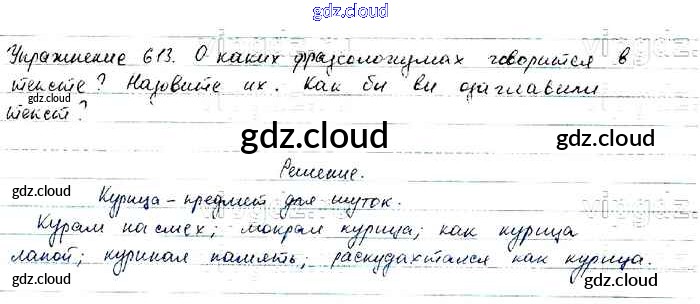 gdz.cloud
Упражнение 613. О каких фразеологизмах говорится в
тексте? Назовите их. Как бы вы озаглавили
gdz.cloud gdz.cloud
текст?
gdz.cloud gdz.cloud
Решение.
gdz.cloud gdz.cloud
Курица – предмет для шуток.
Курам на смех; мокрая курица; как курица
лапой; куриная память; раскудахтался как курица.
gdz.cloud gdz.cloud